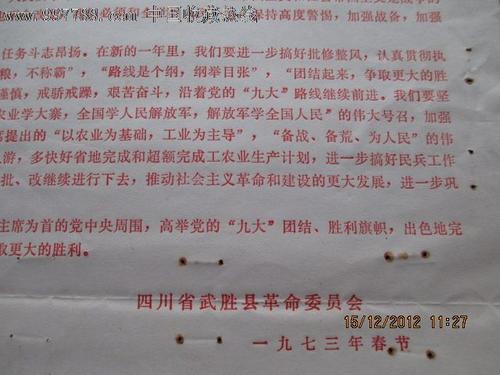 www.997788.com 中国收藏热线
必须和全国
保持高度警惕，加强战备，加强
任务斗志昂扬。在新的一年里，我们要进一步搞好批修整风，认真贯彻执
粮，不称霸”，“路线是个纲，纲举目张”，“团结起来，争取更大的胜
谨慎，戒骄戒躁，艰苦奋斗，沿着党的“九大”路线继续前进。我们要坚
农业学大寨，全国学人民解放军，解放军学全国人民”的伟大号召，加强
席提出的“以农业为基础，工业为主导”，“备战、备荒、为人民”的伟
上游，多快好省地完成和超额完成工农业生产计划，进一步搞好民兵工作
批、改继续进行下去，推动社会主义革命和建设的更大发展，进一步巩
主席为首的党中央周围，高举党的“九大”团结、胜利旗帜，出色地完
取更大的胜利。
四川省武胜县革命委员会
15/12/2012 11:27
一九七三年春节